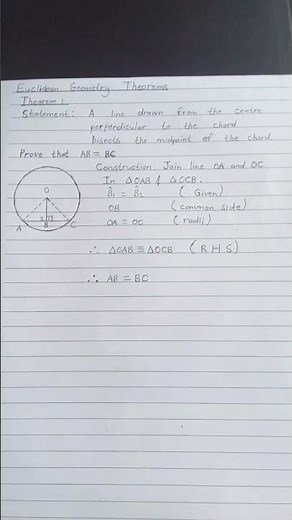 Euclidean Geometry Theorems
Theorem 1
Statement: A line drawn from the centre
perpendicular to the chord
bisects the midpoint of the chord
Prove that AB = BC
Construction: Join line OA and OC
In ΔOAB & ΔOCB:
B̂₁ = B̂₂ (Given)
OB (common side)
OA = OC (radii)
∴ ΔOAB ≡ ΔOCB (RHS)
∴ AB = BC
O
A
B
C